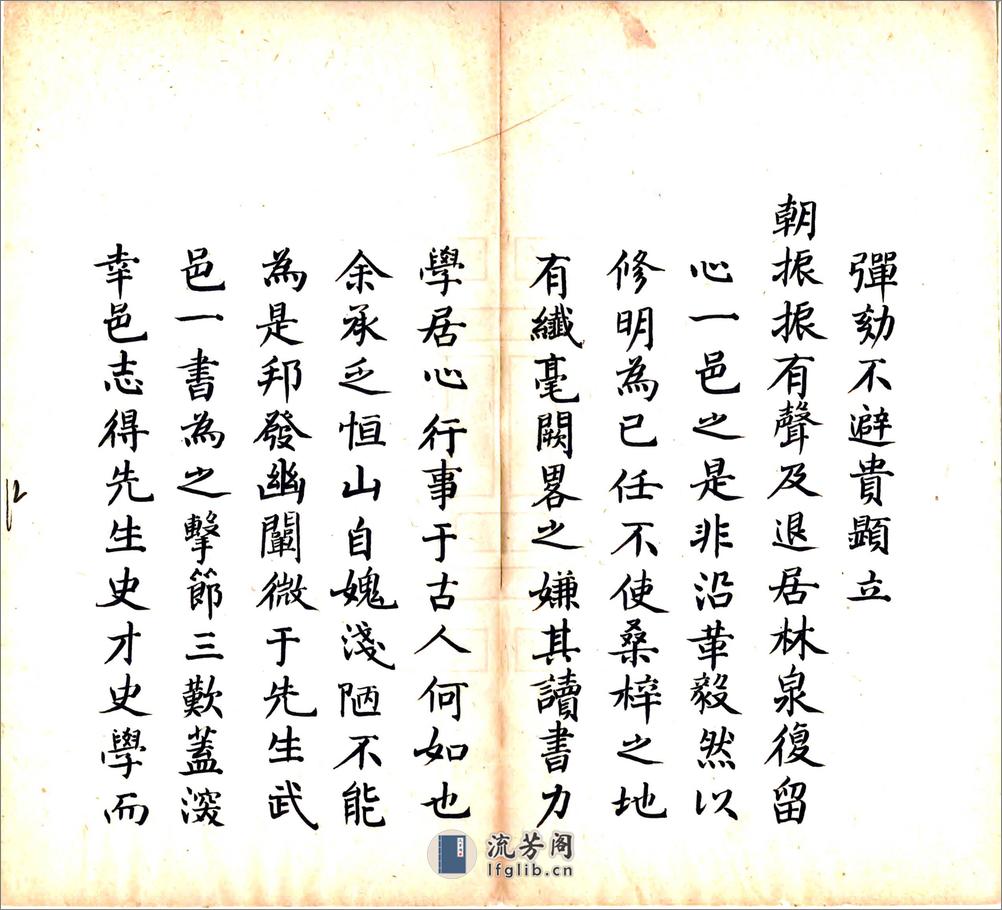 彈劾不避貴顯立
朝振振有聲及退居林泉復留
心一邑之是非沿革毅然以
修明為已任不使桑梓之地
有纖毫闕畧之嫌其讀書力
學居心行事于古人何如也
余承乏恒山自媿淺陋不能
為是邦發幽闡微于先生武
邑一書為之擊節三歎蓋深
幸邑志得先生史才史學而
流芳阁
lfglib.cn